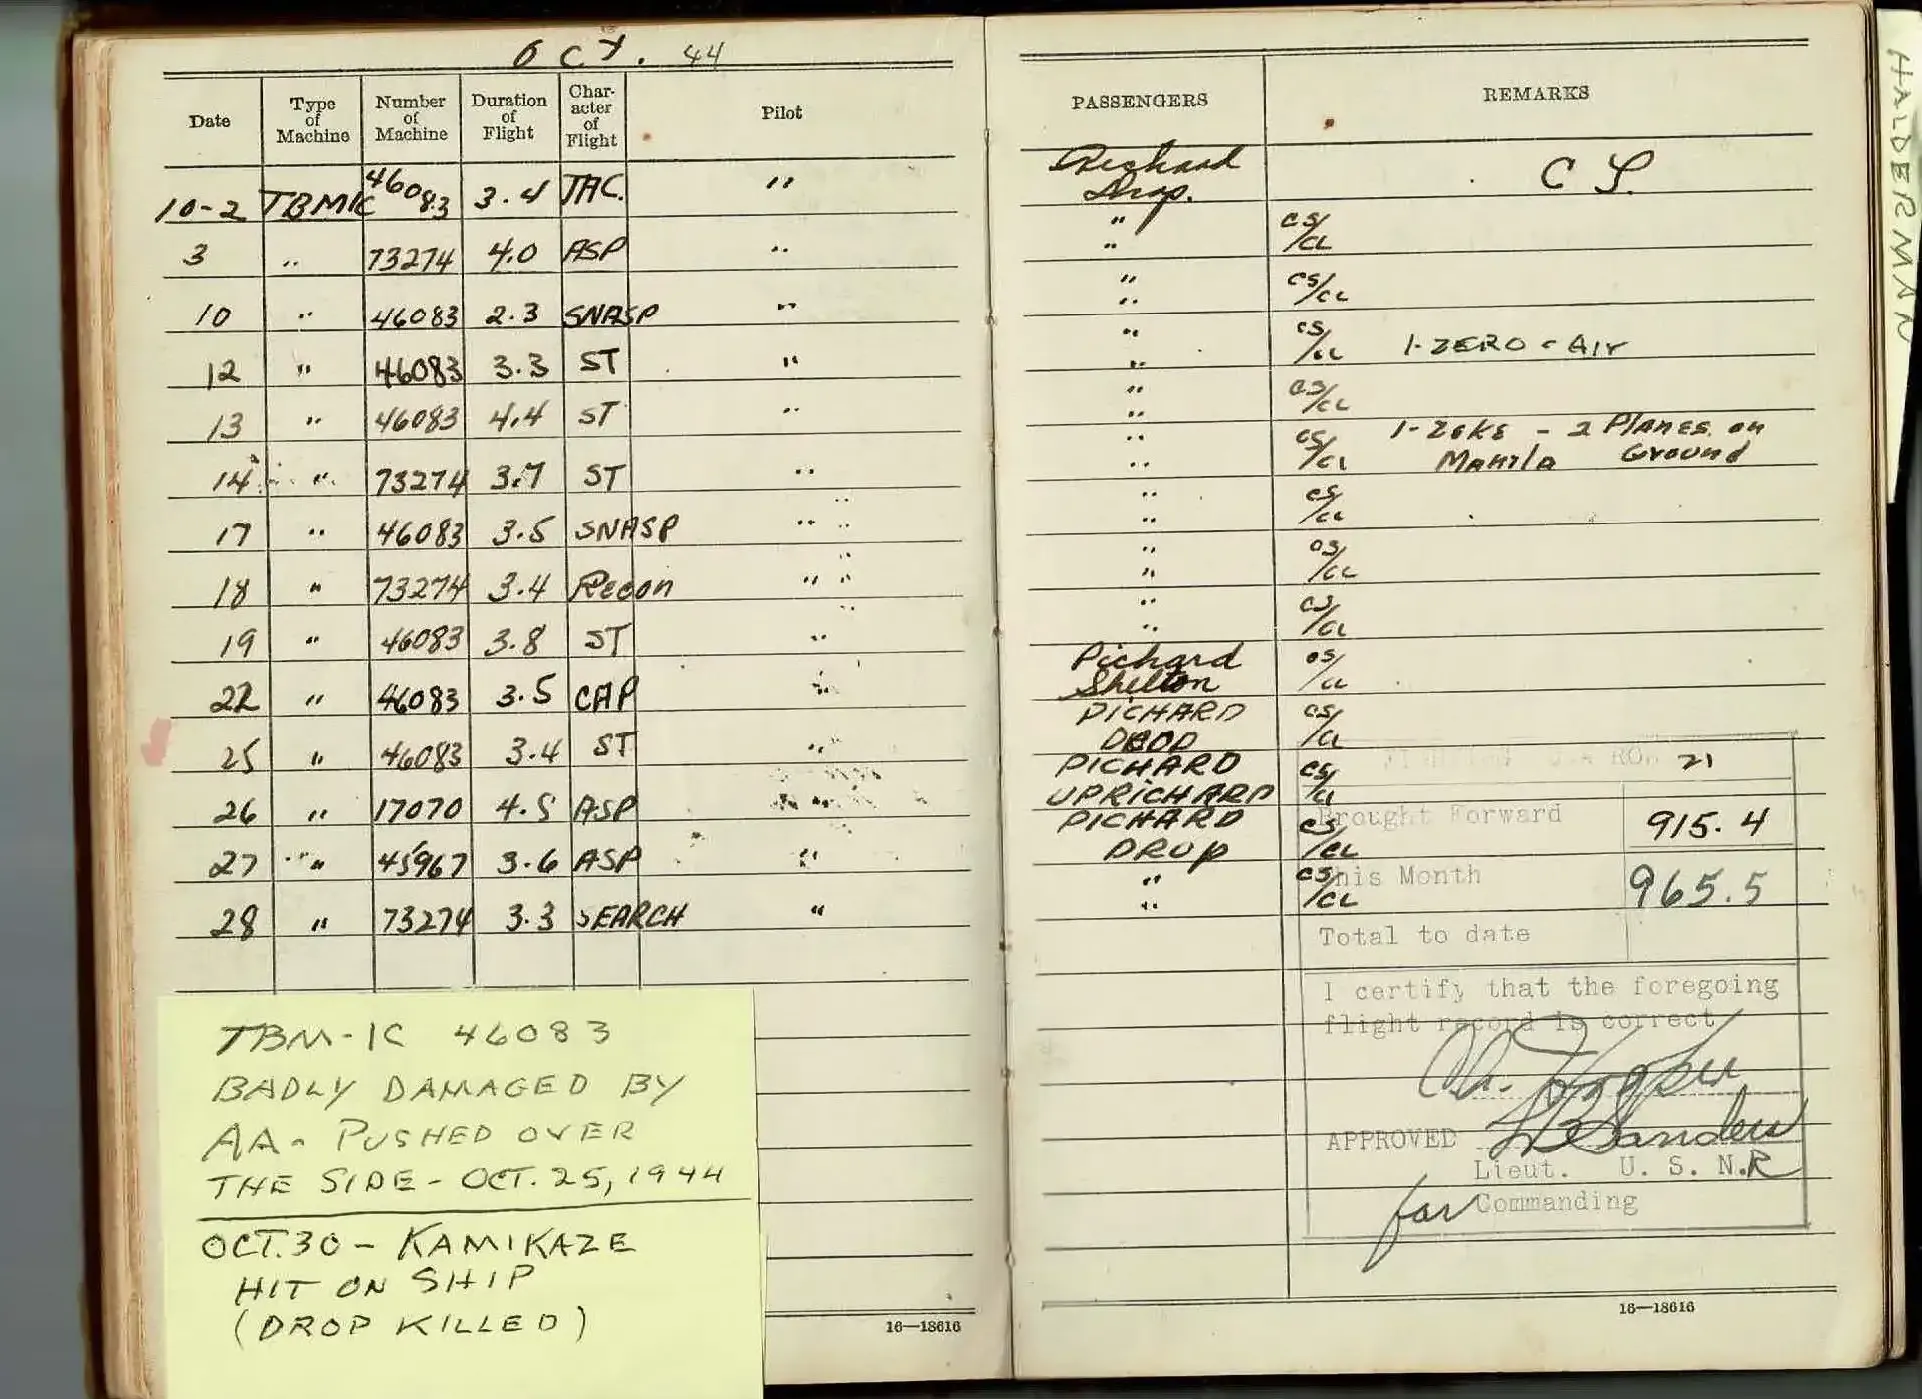 OCT. 44
Date Type of Machine Number of Machine Duration of Flight Character of Flight Pilot PASSENGERS REMARKS
10-2 TBM1C 46083 3.4 TAC. " Pichard Drop. C L.
3 " 73274 4.0 ASP " " " CS/CL
10 " 46083 2.3 SNASP " " " CS/CL
12 " 46083 3.3 ST " " " CS/CL 1-ZERO - AIr
13 " 46083 4.4 ST " " " CS/CL
14 " 73274 3.7 ST " " " CS/CL 1-ZEKE - 2 Planes on Manila Ground
17 " 46083 3.5 SNASP " " " " CS/CL
18 " 73274 3.4 Recon " " " " CS/CL
19 " 46083 3.8 ST " " " CS/CL
22 " 46083 3.5 CAP " Pichard Shelton CS/CL
25 " 46083 3.4 ST " PICHARD DROP CS/CL
26 " 17070 4.5 ASP PICHARD UPRICHARD CS/CL
27 " 45967 3.6 ASP " PICHARD DROP CS/CL
28 " 73274 3.3 SEARCH " " " CS/CL
21
Brought Forward 915.4
This Month 965.5
Total to date
I certify that the foregoing
flight record is correct
APPROVED Sanders
Lieut. U. S. N.R
for Commanding
16—18616
16—18616
TBM-1C 46083
BADLY DAMAGED BY
AA- PUSHED OVER
THE SIDE - OCT. 25, 1944
OCT. 30 - KAMIKAZE
HIT ON SHIP
(DROP KILLED)
HALDERMAN